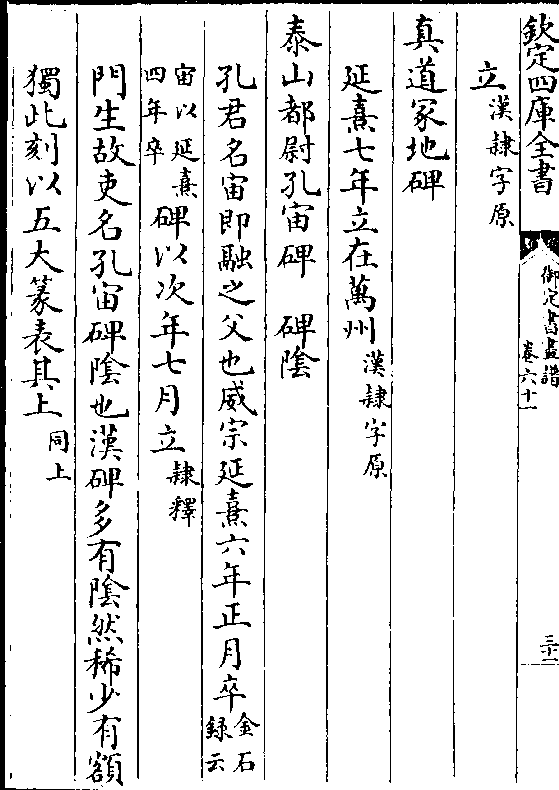 欽定四庫全書
御定書畫譜
卷六十一
三十二
立漢隸字原
真道冢地碑
延熹七年立在萬州漢隸字原
泰山都尉孔宙碑　碑陰
孔君名宙即融之父也威宗延熹六年正月卒金石録云
宙以延熹四年卒碑以次年七月立隸釋
門生故吏名孔宙碑陰也漢碑多有陰然稀少有額
獨此刻以五大篆表其上同上